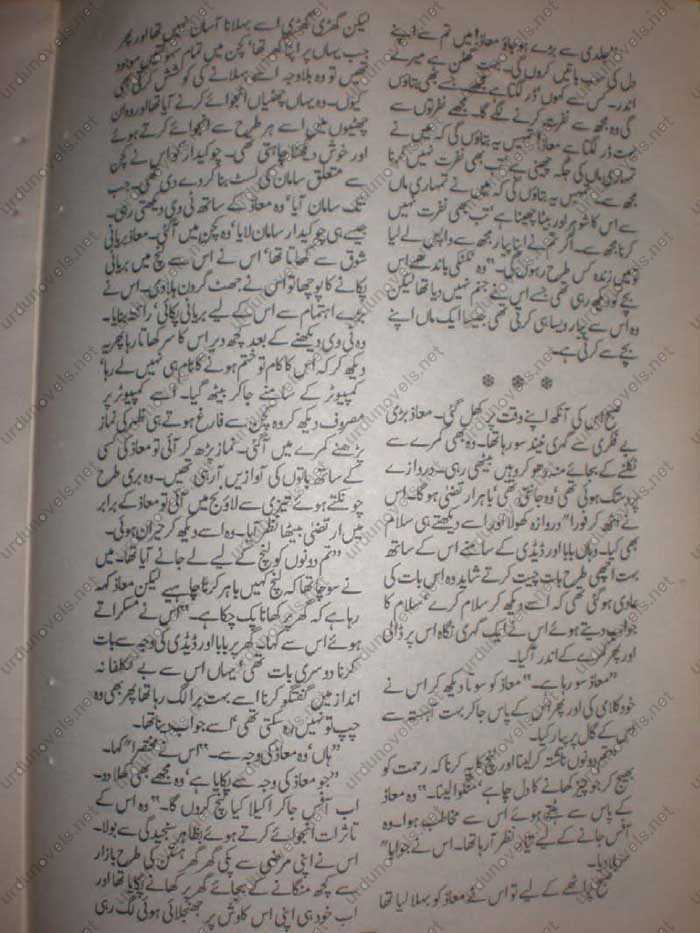 "جلدی سے بڑے ہو جاؤ معاذ! میں تم سے اپنے
دل کی سب باتیں کروں گی۔ بہت گھٹن ہے میرے
اندر۔ کس سے کہوں ڈر لگتا ہے مجھے جسے بھی بتاؤں
گی وہ مجھ سے نفرت کرنے لگے گا۔ مجھے نفرتوں سے
بہت ڈر لگتا ہے معاذ! تمہیں یہ بتاؤں گی کہ میں نے
تمہاری ماں کی جگہ چھینی ہے تب بھی نفرت نہیں کرنا
مجھ سے۔ تمہیں یہ بتاؤں گی کہ میں نے تمہاری ماں
سے اس کا شوہر اور بیٹا چھینا ہے تب بھی نفرت نہیں
کرنا مجھ سے۔ اگر تم نے اپنا پیار مجھ سے واپس لے لیا
تو میں زندہ کس طرح رہوں گی۔" وہ ٹکٹکی باندھے اس
بچے کو دیکھ رہی تھی جسے اس نے جنم نہیں دیا تھا لیکن
وہ اس سے پیار ویسا ہی کرتی تھی جیسا ایک ماں اپنے
بچے سے کرتی ہے۔
* * *
صبح اس کی آنکھ اپنے وقت پر کھل گئی۔ معاذ بڑی
بے فکری سے گہری نیند سو رہا تھا۔ وہ بھی کمرے سے
نکلنے کے بجائے منہ دھو کر وہیں بیٹھی رہی۔ دروازے
پر دستک ہوئی تھی وہ جانتی تھی باہر ارتضیٰ ہو گا۔ اس
نے اٹھ کر فورا" دروازہ کھولا اور اسے دیکھتے ہی سلام
بھی کیا۔ وہاں بابا اور ڈیڈی کے سامنے اس کے ساتھ
بہت اچھی طرح بات چیت کرتے شاید وہ اس بات کی
عادی ہو گئی تھی کہ اسے دیکھ کر سلام کرے۔ سلام کا
جواب دیتے ہوئے اس نے ایک گہری نگاہ اس پر ڈالی
اور پھر کمرے کے اندر آ گیا۔
"معاذ سو رہا ہے۔" معاذ کو سوتا دیکھ کر اس نے
خود کلامی کی اور پھر اس کے پاس جا کر بہت آہستہ سے
اس کے گال پر پیار کیا۔
"تم دونوں ناشتہ کر لینا اور لنچ کا یہ کرنا کہ رحمت کو
بھیج کر جو چیز کھانے کا دل چاہے منگوا لینا۔" وہ معاذ
کے پاس سے ہٹتے ہوئے اس سے مخاطب ہوا۔ وہ
آفس جانے کے لیے تیار نظر آ رہا تھا۔ اس نے جوابا"
سر ہلا دیا۔
صبح پراٹھے کے لیے تو اس نے معاذ کو بہلا لیا تھا
لیکن گھڑی گھڑی اسے بہلانا آسان نہیں تھا اور پھر
جب یہاں پر اپنا گھر تھا کچن میں تمام سہولتیں موجود
تھیں تو وہ بلاوجہ اسے بہلانے کی کوشش کرتی بھی
کیوں۔ وہ یہاں چھٹیاں انجوائے کرنے آیا تھا اور وہ ان
چھٹیوں میں اسے ہر طرح سے انجوائے کرتے ہوئے
اور خوش دیکھنا چاہتی تھی۔ چوکیدار کو اس نے کچن
سے متعلق سامان کی لسٹ بنا کر دے دی تھی۔ جب
تک سامان آیا وہ معاذ کے ساتھ ٹی وی دیکھتی رہی۔
جیسے ہی چوکیدار سامان لایا وہ کچن میں آ گئی۔ معاذ بریانی
شوق سے کھاتا تھا اس نے اس سے لنچ میں بریانی
پکانے کا پوچھا تو اس نے جھٹ گردن ہلا دی۔ اس نے
بڑے اہتمام سے اس کے لیے بریانی پکائی، رائتہ بنایا۔
وہ ٹی وی دیکھنے کے بعد کچھ دیر اس کا سر کھاتا رہا پھر یہ
دیکھ کر کہ اس کا کام تو ختم ہونے کا نام ہی نہیں لے رہا
کمپیوٹر کے سامنے جا کر بیٹھ گیا۔ اسے کمپیوٹر پر
مصروف دیکھ کر وہ کچن سے فارغ ہوتے ہی ظہر کی نماز
پڑھنے کمرے میں آ گئی۔ نماز پڑھ کر آئی تو معاذ کی کسی
کے ساتھ باتوں کی آوازیں آ رہی تھیں۔ وہ بری طرح
چونکتے ہوئے تیزی سے لاؤنج میں آئی تو معاذ کے برابر
میں ارتضیٰ بیٹھا نظر آیا۔ وہ اسے دیکھ کر حیران ہوئی۔
"تم دونوں کو لنچ کے لیے لے جانے آیا تھا۔ میں
نے سوچا تھا کہ لنچ کہیں باہر کرنا چاہیے لیکن معاذ کہہ
رہا ہے کہ گھر پر کھانا پک چکا ہے۔" اس نے مسکراتے
ہوئے اس سے کہا۔ گھر پر بابا اور ڈیڈی کی وجہ سے بات
کرنا دوسری بات تھی یہاں اس سے بے تکلفانہ
انداز میں گفتگو کرنا اسے بہت برا لگ رہا تھا پھر بھی وہ
چپ تو نہیں رہ سکتی تھی اسے جواب دینا تھا۔
"ہاں وہ معاذ کی وجہ سے۔" اس نے مختصرا" کہا۔
"جو معاذ کی وجہ سے پکایا ہے وہ مجھے بھی کھلا دو۔
اب آفس جا کر اکیلا کیا لنچ کروں گا۔" وہ اس کے
تاثرات انجوائے کرتے ہوئے بظاہر سنجیدگی سے بولا۔
اس نے اپنی مرضی سے پکی گھر گھرہستن کی طرح بازار
سے کچھ منگانے کے بجائے گھر پر کھانے پکایا تھا اور
اب خود ہی اپنی اس کاوش پر جھنجلائی ہوئی لگ رہی
urdunovels.net